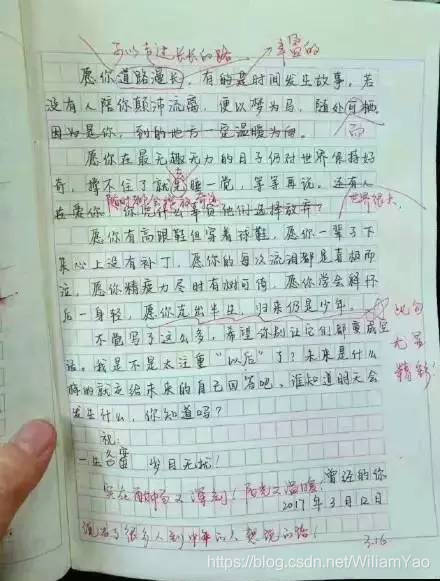 可以走过长长的路 丰富的
愿你道路漫长，有的是时间发生故事，若
没有人陪你颠沛流离，便以梦为马，随处可栖
因为是你，到的地方一定温暖为向。 而
愿你在最无趣无力的日子仍对世界保持好
奇，撑不住了就去睡一觉，等等再说，还有人
在爱你， 世界很大，
愿你有高跟鞋但穿着球鞋，愿你一辈子下
来心上没有补丁，愿你的每次流泪都是喜极而
泣，愿你精疲力尽时有树可倚，愿你学会释怀
后一身轻，愿你走出半生，归来仍是少年。 此句
不觉写了这么多，希望你别让它们都变成空 尤显
话，我是不是太注重“以后”了？未来是什么 精彩！
样的就交给未来的自己回答吧，谁知道明天会
发生什么，你知道吗？
祝：
一生 岁月无忧！
曾经的你
实在 又深刻！阳光又温暖
2017年3月12日
说出了很多人到中年的人想说的话！
3.16
https://blog.csdn.net/WiliamYao